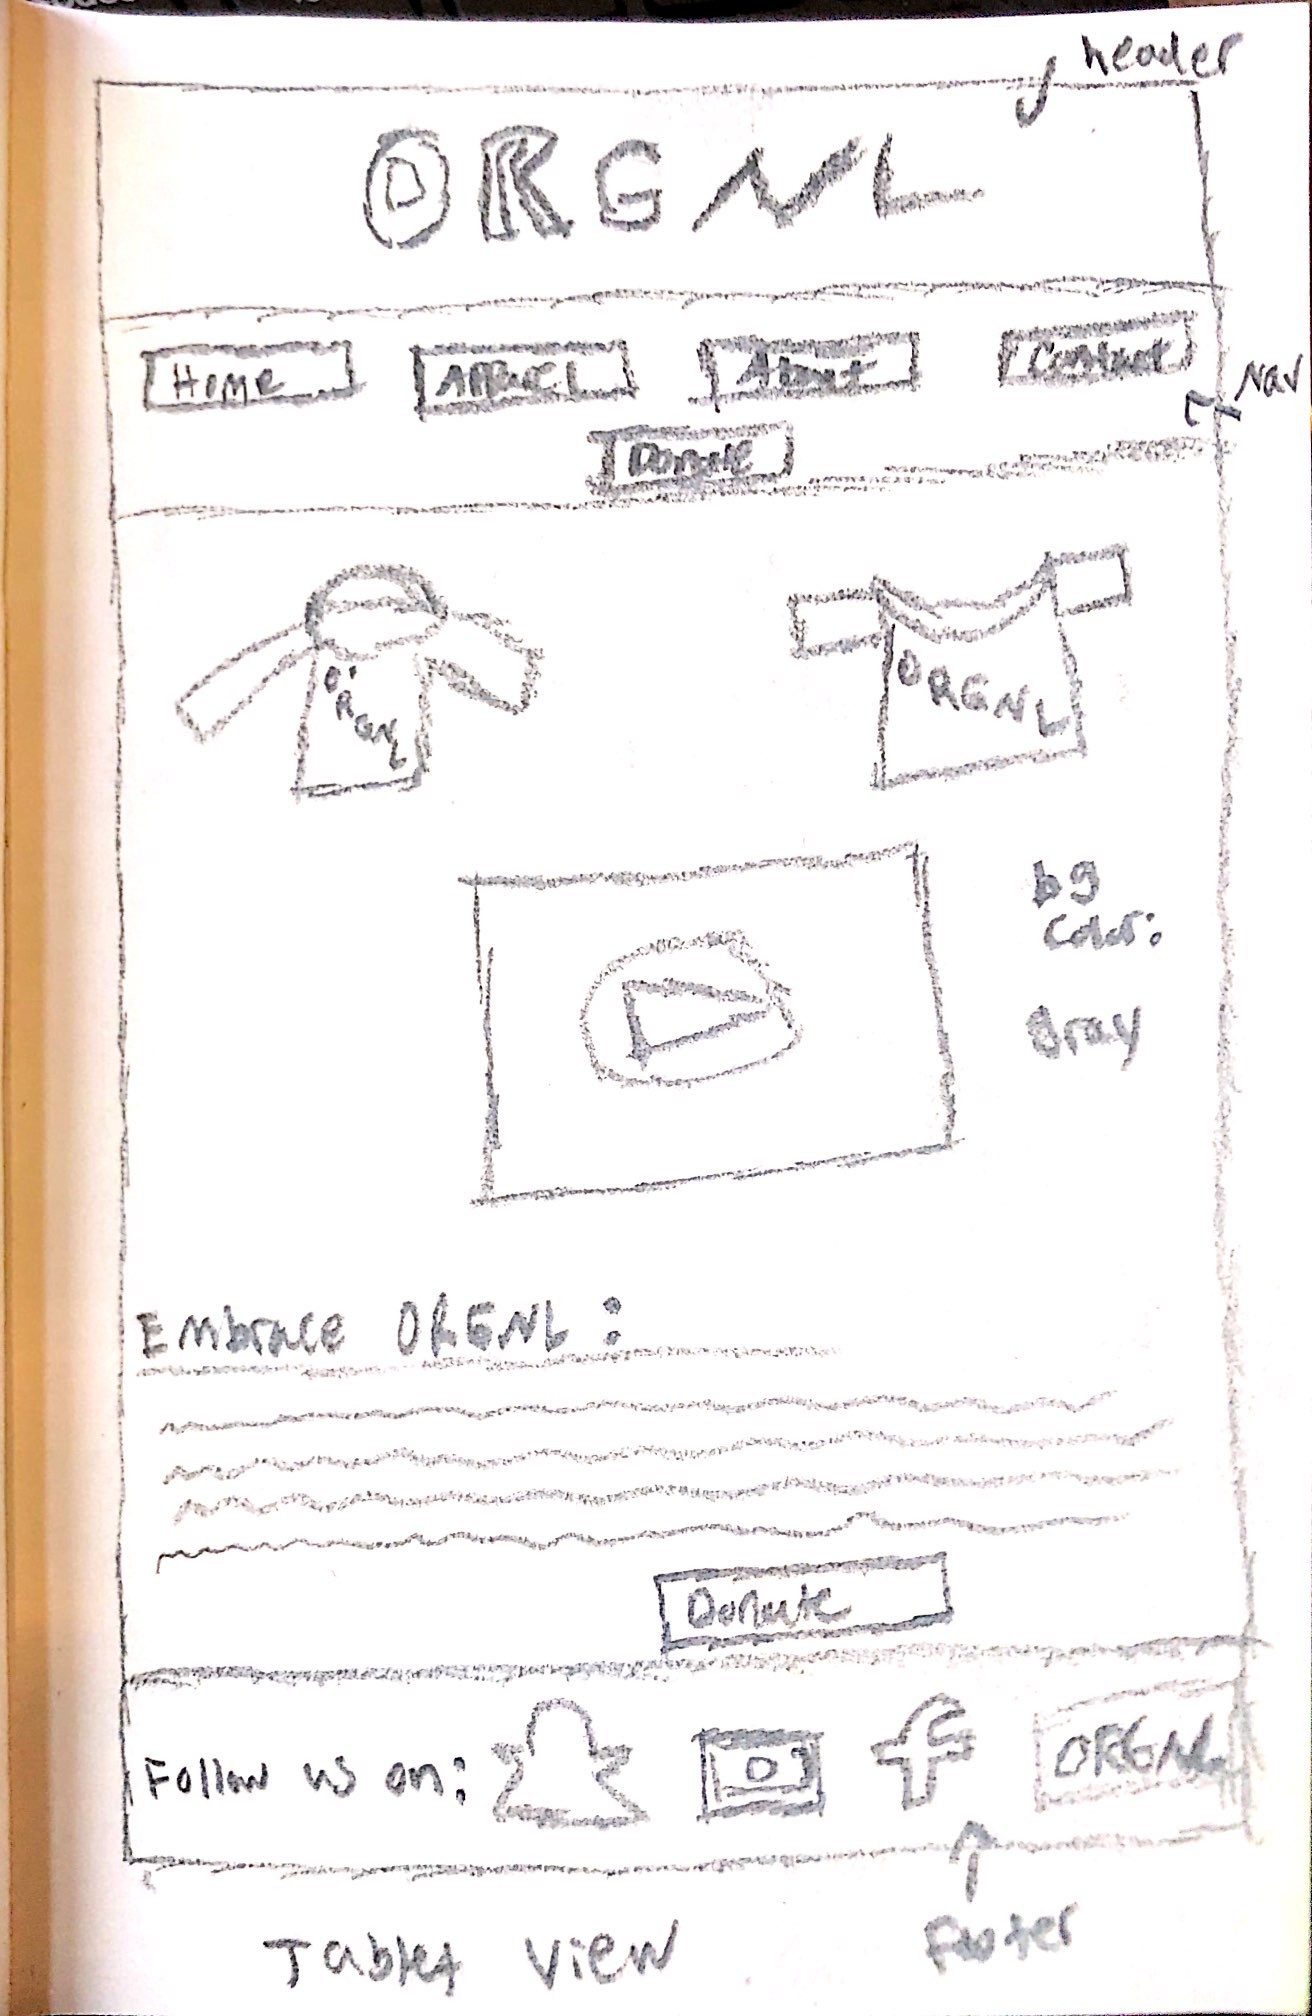 header
ORGNL
Home Apparel About Contact
Nav
Donate
ORGNL ORGNL
bg
color:
gray
Embrace ORGNL:
Donate
Follow us on: f ORGNL
Tablet View footer